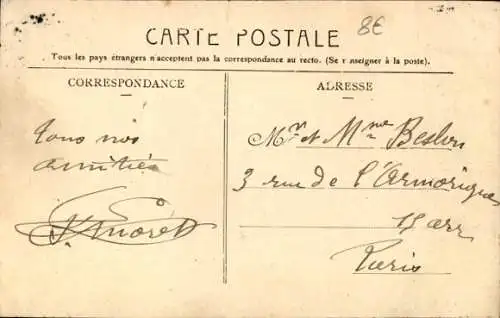 8€
CARTE POSTALE
Tous les pays étrangers n'acceptent pas la correspondance au recto. (Se r nseigner à la poste).
CORRESPONDANCE
ADRESSE
tous nos
amitiés
Mr et Mme Beslon
3 rue de l'Armorique
15 arr
Paris